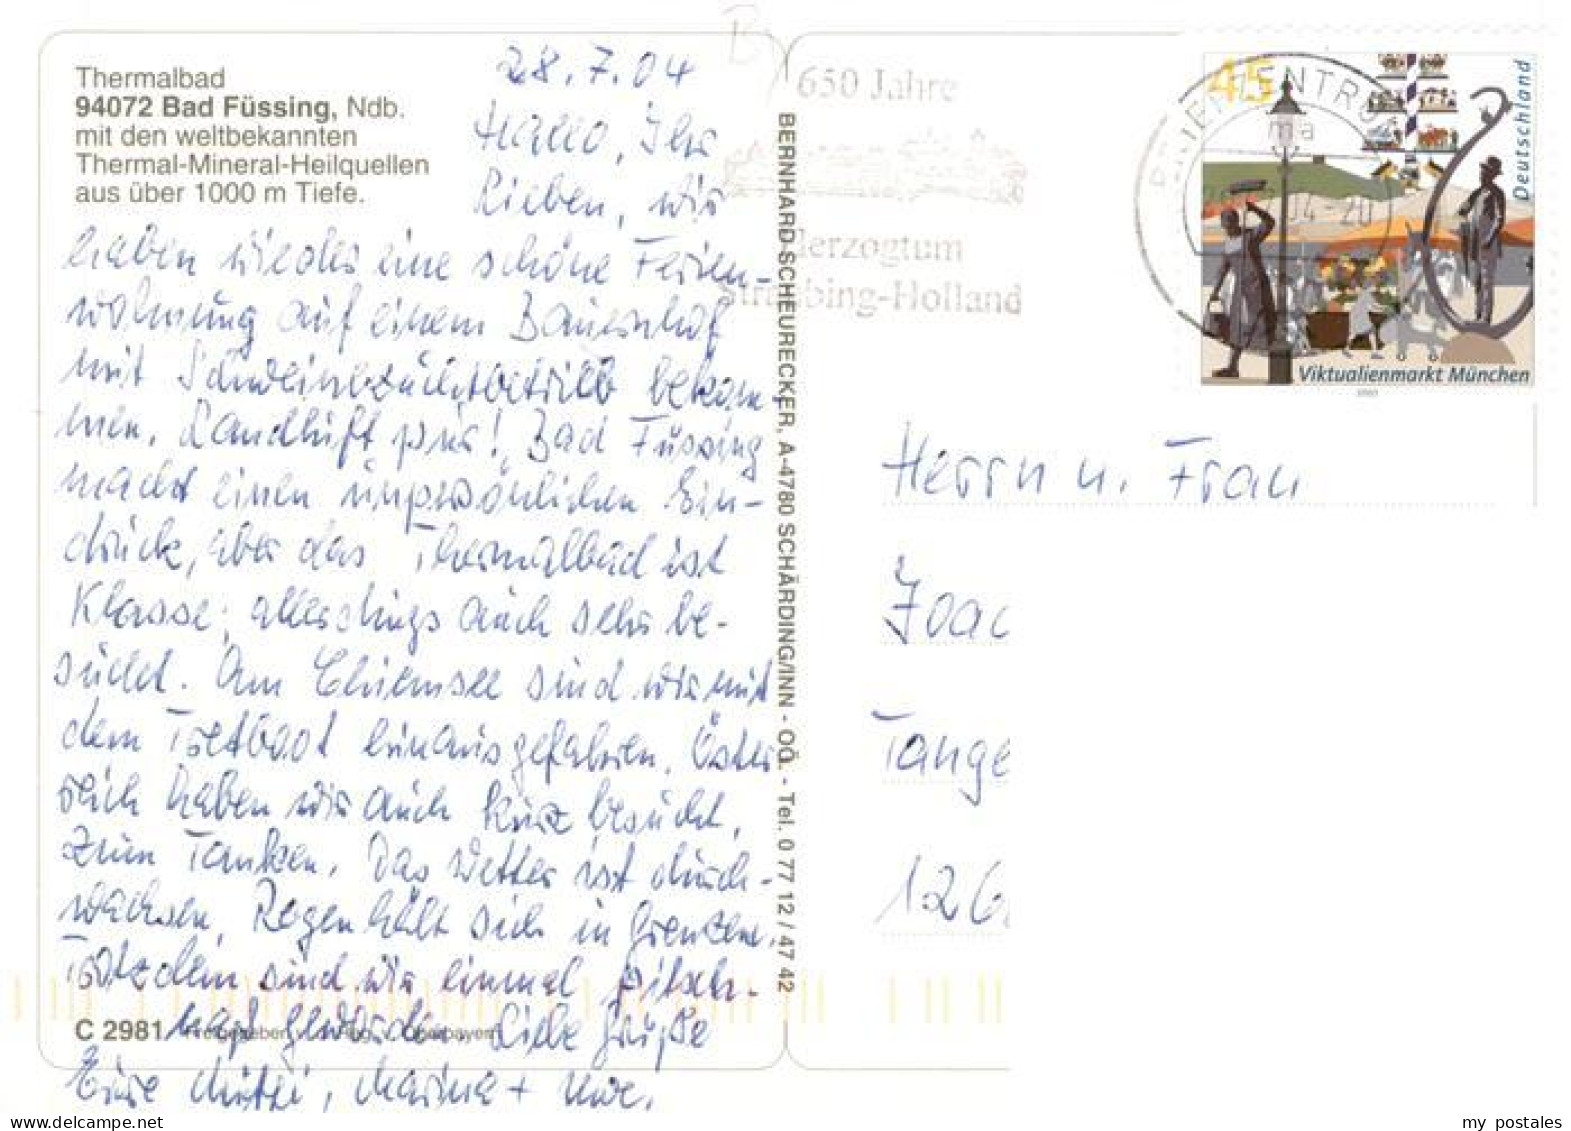 Thermalbad
94072 Bad Füssing, Ndb.
mit den weltbekannten
Thermal-Mineral-Heilquellen
aus über 1000 m Tiefe.
28.7.04
Hallo, Ihr
Lieben, wir
haben wieder eine schöne Ferien-
wohnung auf einem Bauernhof
mit Schweinezuchtbetrieb bekom-
men. Landluft pur! Bad Füssing
macht einen unpersönlichen Ein-
druck, aber das Thermalbad ist
Klasse, allerdings auch sehr be-
sucht. Am Chiemsee sind wir mit
dem Tretboot hinausgefahren. Öster
reich haben wir auch kurz besucht,
zum Tanken. Das Wetter ist durch-
wachsen, Regen hält sich in Grenzen.
Trotzdem sind wir einmal pitsch-
naß geworden. Liebe Grüße
Eure Mutti, Marina + Uwe.
C 2981
BERNHARD SCHEURECKER, A-4780 SCHÄRDING/INN - OÖ. - Tel. 0 77 12 / 47 42
650 Jahre
Herzogtum
Straubing-Holland
45
Deutschland
Viktualienmarkt München
BRIEFZENTRUM
ma
04-20
Herrn u. Frau
Joac
Tange
126
my postales